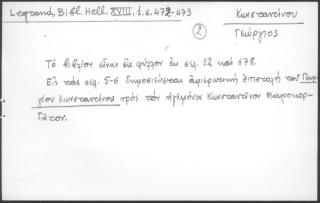 Legrand, Bibl. Hell. XVIII, 1, σ. 472-473
Κωνσταντίνου
Γεώργιος
(2)
Τὸ βιβλίον εἶναι εἰς φύλλον ἐκ σελ. 12 καὶ 678.
Εἰς τὰς σελ. 5-6 δημοσιεύεται ἀφιερωτικὴ ἐπιστολὴ τοῦ Γεωρ-
γίου Κωνσταντίνου πρὸς τὸν ἡγεμόνα Κωνσταντῖνον Μαυροκορ-
δᾶτον.